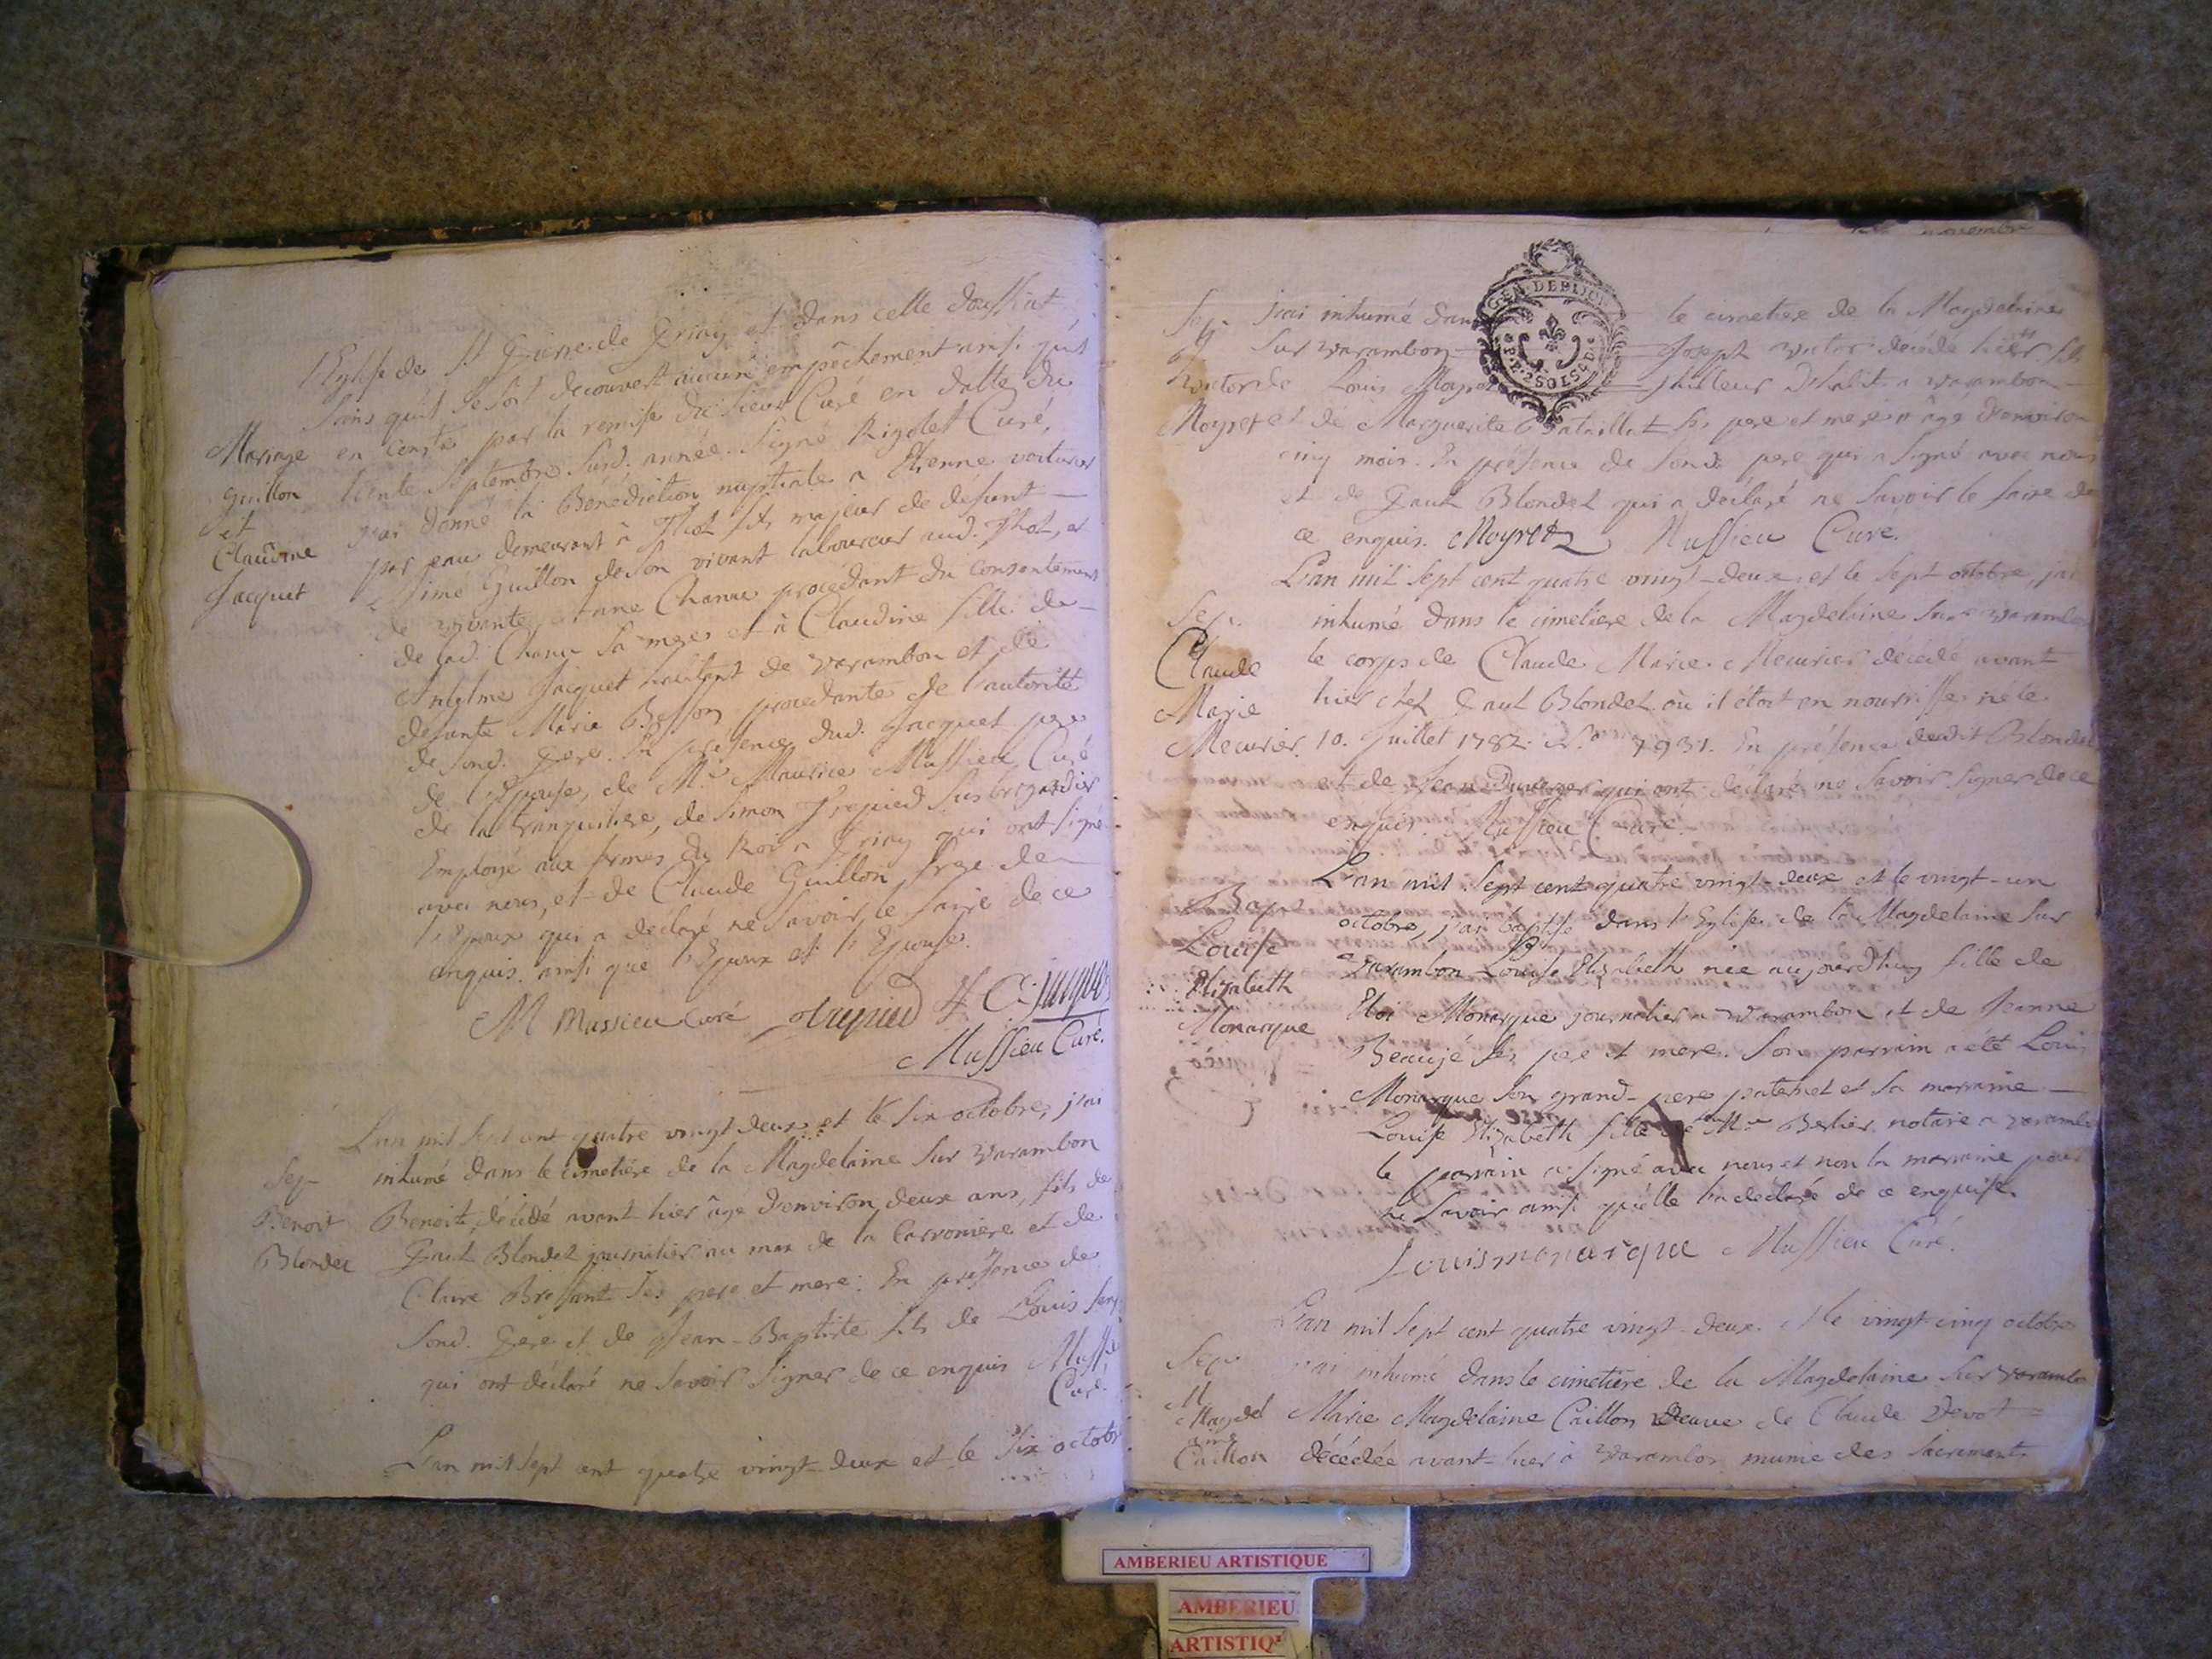 l'Eglise de St Pierre de Priay et dans celle doussiat
sans qu'il se soit decouvert aucun empêchement ainsi qu'il
Mariage en conste par la remise du sieur Curé en datte du
Guillon trente septembre susd. année. signé Rigolet Curé,
et j'ai donné la Bénédiction nuptiale a Etienne voiturier
Claudine par eau demeurant à Thol fils majeur de défunt
Jacquet Aimé Guillon de son vivant laboureur aud. Thol, et
de vivante anne Chanu procedant du consentement
de lad. Chanu sa mere et à Claudine fille de
Antelme Jacquet habitant de varambon et de
defunte Marie Besson procedante de l'autorité
de sond. pere. En présence dud. Jacquet pere
de l'Epouse, de Mre Maurice Massieu Curé
de la tranquiliere, de Simon Trepied sus brigadier
Employé aux fermes du Roi a Priay qui ont signé
avec nous, et de Claude Guillon frere de
l'Epoux qui a déclaré ne savoir le faire de ce
enquis. ainsi que l'Epoux et l'Epouse.
M Massieu Curé Trepied C. jacquet
Massieu Curé.
L'an mil sept cent quatre vingt deux et le six octobre, j'ai
Sep. inhumé dans le cimetière de la Magdelaine sur varambon
Benoit Benoit, décédé avant-hier âge d'environ deux ans, fils de
Blondel Paul Blondel journalier au mas de la Carroniere et de
Clare Bressant ses pere et mere: En présence de
sond. Pere et de Jean-Baptiste fils de Louis
qui ont déclaré ne savoir signer de ce enquis Massieu
Curé.
L'an mil sept cent quatre vingt-deux et le six octobre
novembre
GEN. DE DIJON
Sep. j'ai inhumé dans le cimetiere de la Magdelaine
sur varambon Joseph victor decédé hier fils
victor de Louis Moyret tailleur d'habits a varambon
Moyret et de Marguerite Bataillat ses pere et mere âge d'environ
cinq mois. En présence de sond. pere qui a signé avec nous
et de Paul Blondel qui a declaré ne savoir le faire de
ce enquis. Moyret Massieu Curé.
L'an mil sept cent quatre vingt-deux et le sept octobre, j'ai
Sep. inhumé dans le cimetiere de la Magdelaine sur varambon
Claude le corps de Claude Marie Meurier decedé avant
Marie hier chez Paul Blondel où il étoit en nourrisse né le
Meurier. 10. Juillet 1782. N.o 7931. En présence dudit Blondel
et de Jean qui ont déclaré ne savoir signer de ce
enquis. Massieu Curé
L'an mil sept cent quatre vingt-deux et le vingt-un
Bapt. octobre, j'ai baptisé dans l'Eglise de la Magdelaine sur
Louise varambon Louise Elizabeth née aujourd'huy fille de
Elizabeth Eloi Monarque journalier a varambon et de Jeanne
Monarque Beaujé ses pere et mere. Son parrain a été Louis
Monarque son grand-pere paternel et sa marraine
Louise Elizabeth fille de Mre Berlier notaire a varambon
le parrain a signé avec nous et non la marraine pour
ne savoir ainsi qu'elle l'a déclaré de ce enquise.
Louis monarque Massieu Curé.
L'an mil sept cent quatre vingt-deux et le vingt-cinq octobre
Sep. j'ai inhumé dans le cimetiere de la Magdelaine sur varambon
M.
Magdelaine Marie Magdelaine Caillon veuve de Claude Devot
Caillon décédée avant-hier à varambon munie des sacrements
AMBERIEU ARTISTIQUE
AMBERIEU
ARTISTIQ